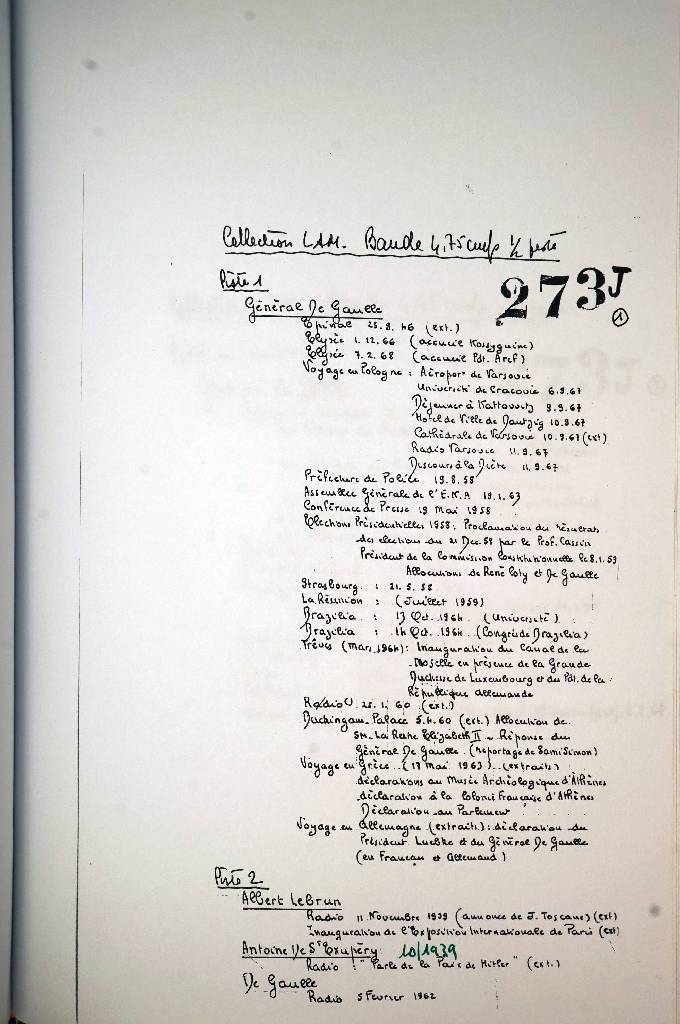 Collection LAM. Bande 4,75 cm/s 1/2 piste
Piste 1
273J
1
Général De Gaulle
Epinal 25.9.46 (ext.)
Elysée 1.12.66 (accueil Kossyguine)
Elysée 7.2.68 (accueil Pdt. Aref)
Voyage en Pologne : Aéroport de Varsovie
Université de Cracovie 6.9.67
Déjeuner à Kattovvitz 9.9.67
Hotel de Ville de Dantzig 10.9.67
Cathédrale de Varsovie 10.9.67 (ext)
Radio Varsovie 11.9.67
Discours à la Diète 11.9.67
Préfecture de Police 19.8.58
Assemblée Générale de l'E.N.A 19.1.63
Conférence de Presse 19 Mai 1958
Elections Présidentielles 1958 : Proclamation des résultats
des elections du 21 Dec. 58 par le Prof. Cassin
Président de la Commission Constitutionnelle le 8.1.59
Allocutions de René Coty et De Gaulle
Strasbourg : 21.5.58
La Réunion : (Juillet 1959)
Brazilia : 13 Oct. 1964 (Université)
Brazilia : 14 Oct. 1964 (Congrès de Brazilia)
Trèves (Mars 1964) : Inauguration du Canal de la
Moselle en présence de la Grande
Duchesse de Luxembourg et du Pdt. de la
République allemande
Radio 60 (ext.)
Buckingam Palace 5.4.60 (ext.) Allocution de
SM. La Reine Elizabeth II - Réponse du
Général De Gaulle (reportage de Sami Simon)
Voyage en Grèce (17 Mai 1963) (extraits)
déclarations au Musée Archéologique d'Athènes
déclaration à la Colonie Française d'Athènes
Déclaration au Parlement
Voyage en Allemagne (extraits) : déclaration du
Président Luebke et du Général De Gaulle
(en Français et Allemand)
Piste 2
Albert LeBrun
Radio 11 Novembre 1939 (annonce de J. Toscane) (ext)
Inauguration de l'Exposition Internationale de Paris (ext)
Antoine De St Exupéry 10/1939
Radio : "Parle de la Paix de Hitler" (ext.)
De Gaulle
Radio 5 Fevrier 1962